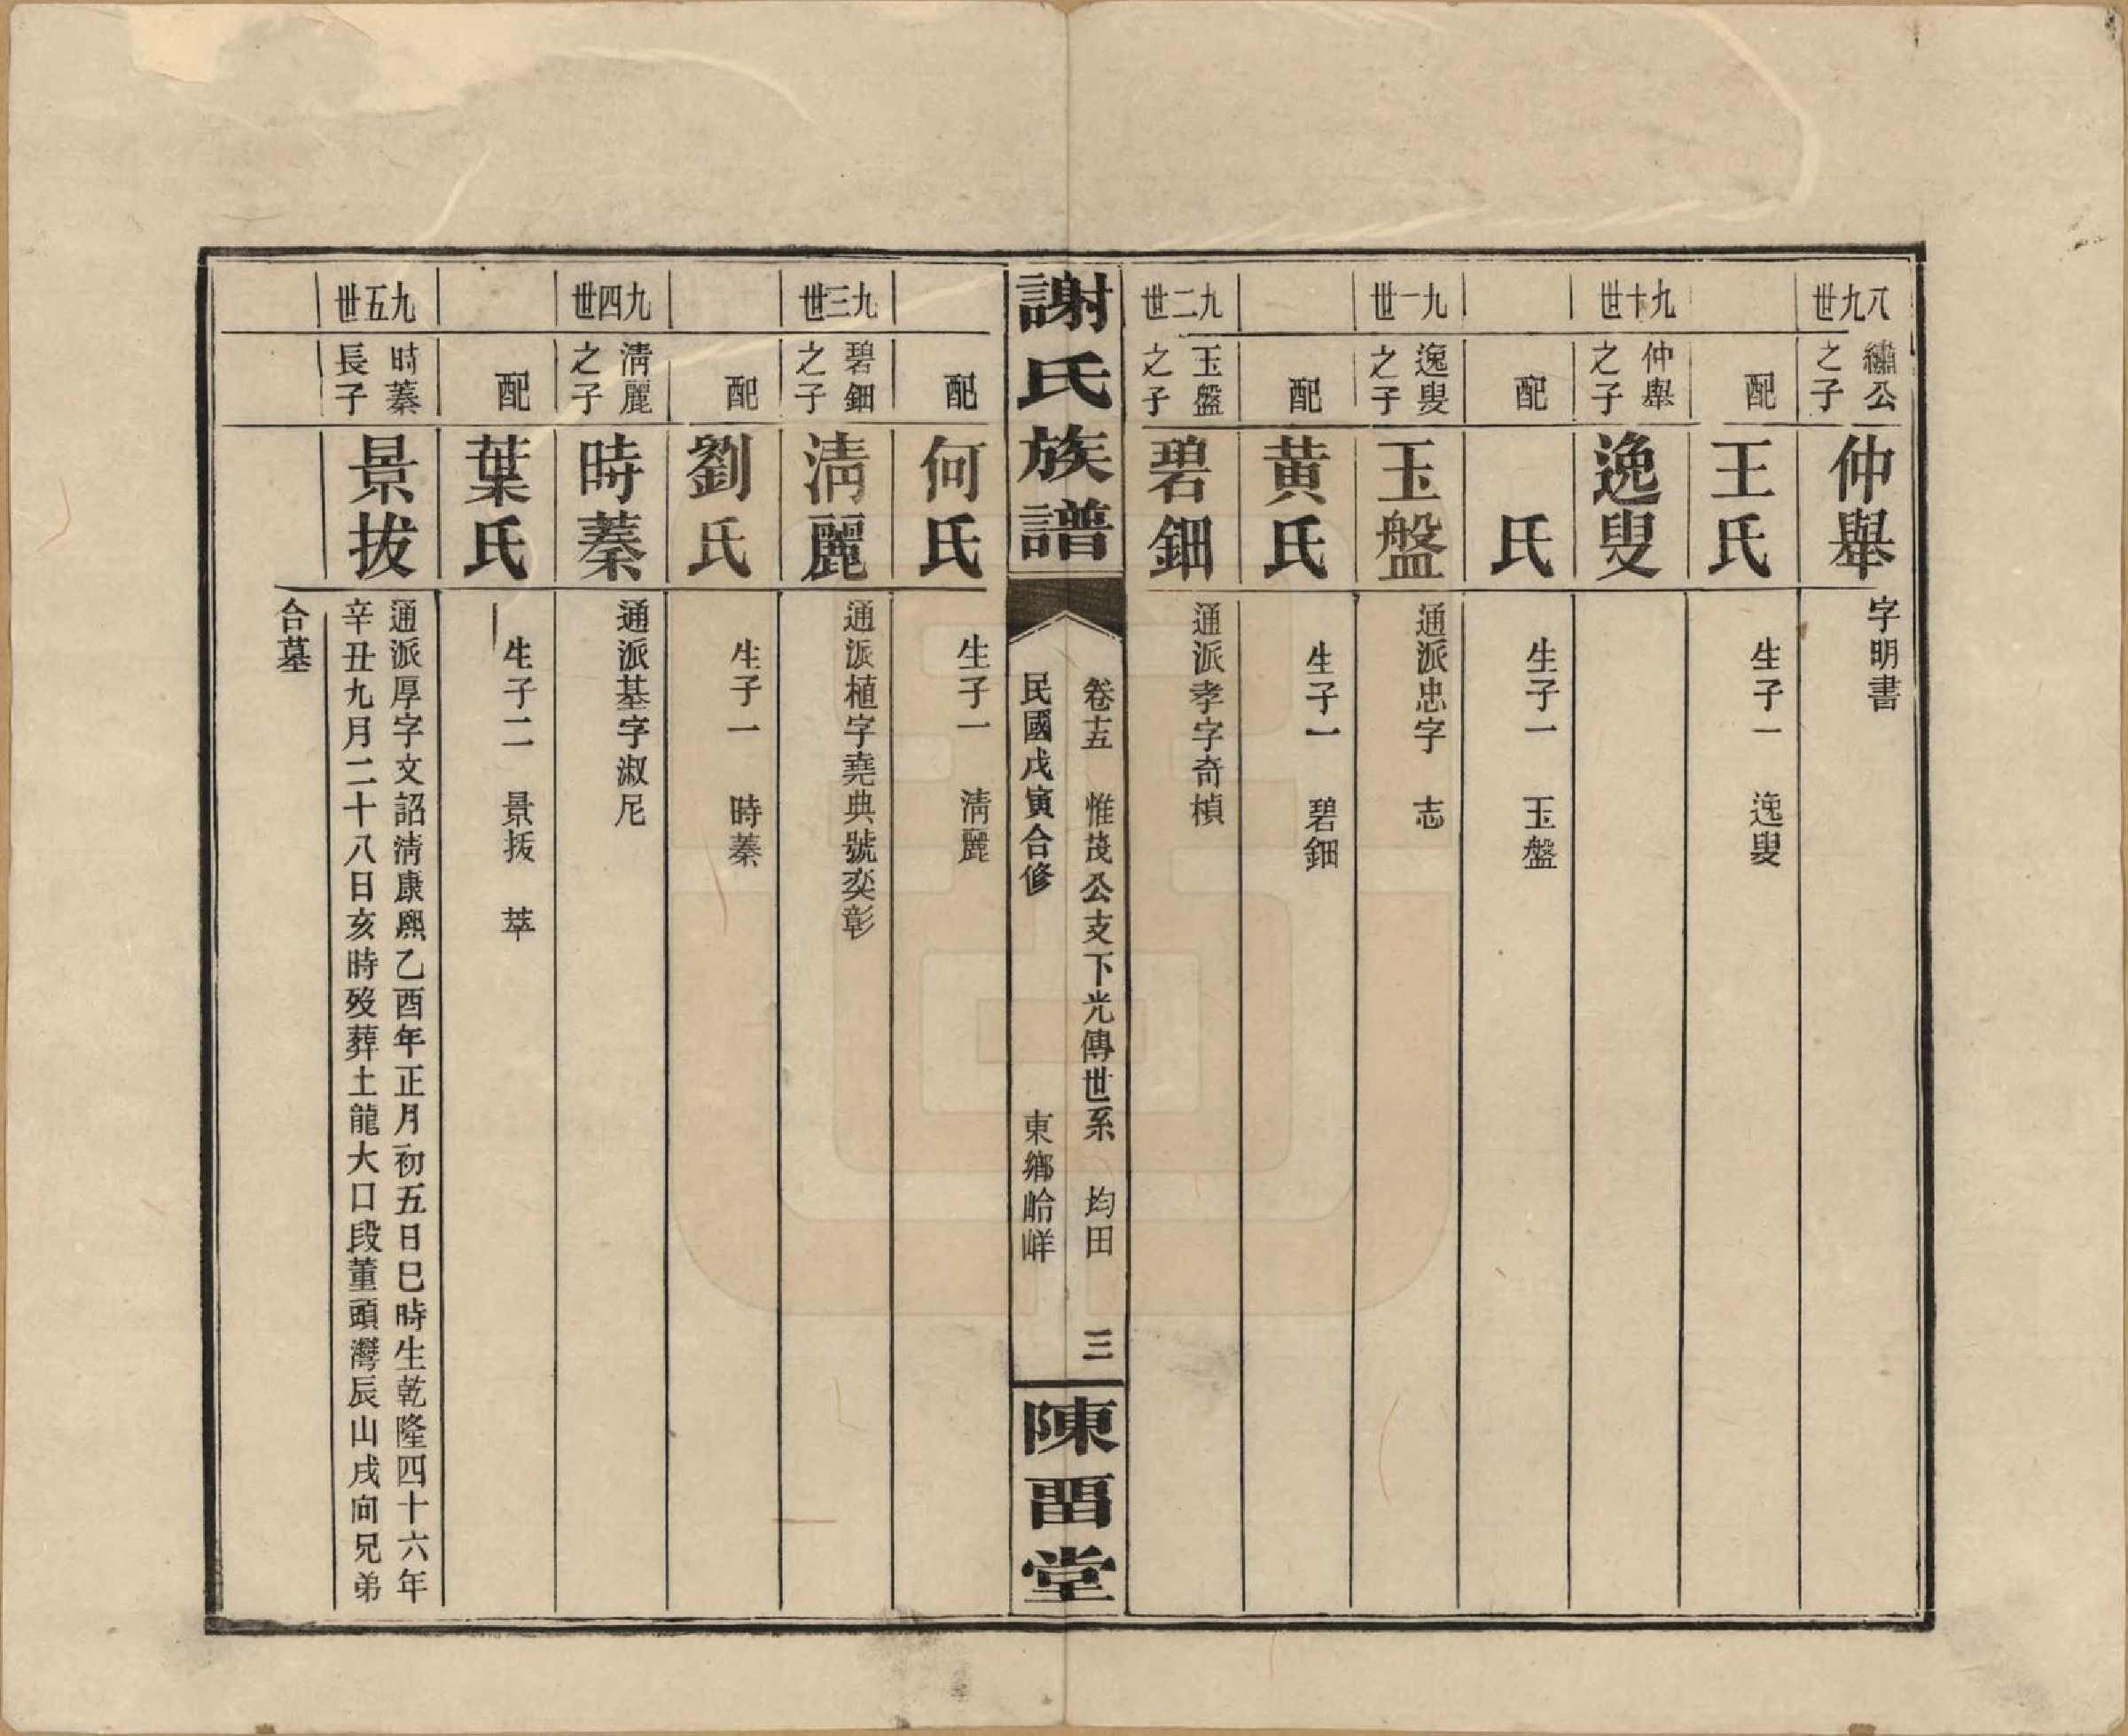 八九世
繡公
之子
仲舉
字明書
配
王氏
生子一 逸叟
九十世
仲舉
之子
逸叟
配
氏
生子一 玉盤
九一世
逸叟
之子
玉盤
通派忠字 志
配
黄氏
生子一 碧鈿
九二世
玉盤
之子
碧鈿
通派孝字奇楨
謝氏族譜
卷十五 惟茂公支下光傳世系 均田 三
民國戊寅合修 東鄉峆㟄
陳畱堂
配
何氏
生子一 淸麗
九三世
碧鈿
之子
淸麗
通派植字堯典號奕彰
配
劉氏
生子一 時蓁
九四世
淸麗
之子
時蓁
通派基字淑尼
配
葉氏
生子二 景拔 萃
九五世
時蓁
長子
景拔
通派厚字文詔淸康熙乙酉年正月初五日巳時生乾隆四十六年
辛丑九月二十八日亥時歿葬土龍大口段董頭灣辰山戌向兄弟
合墓